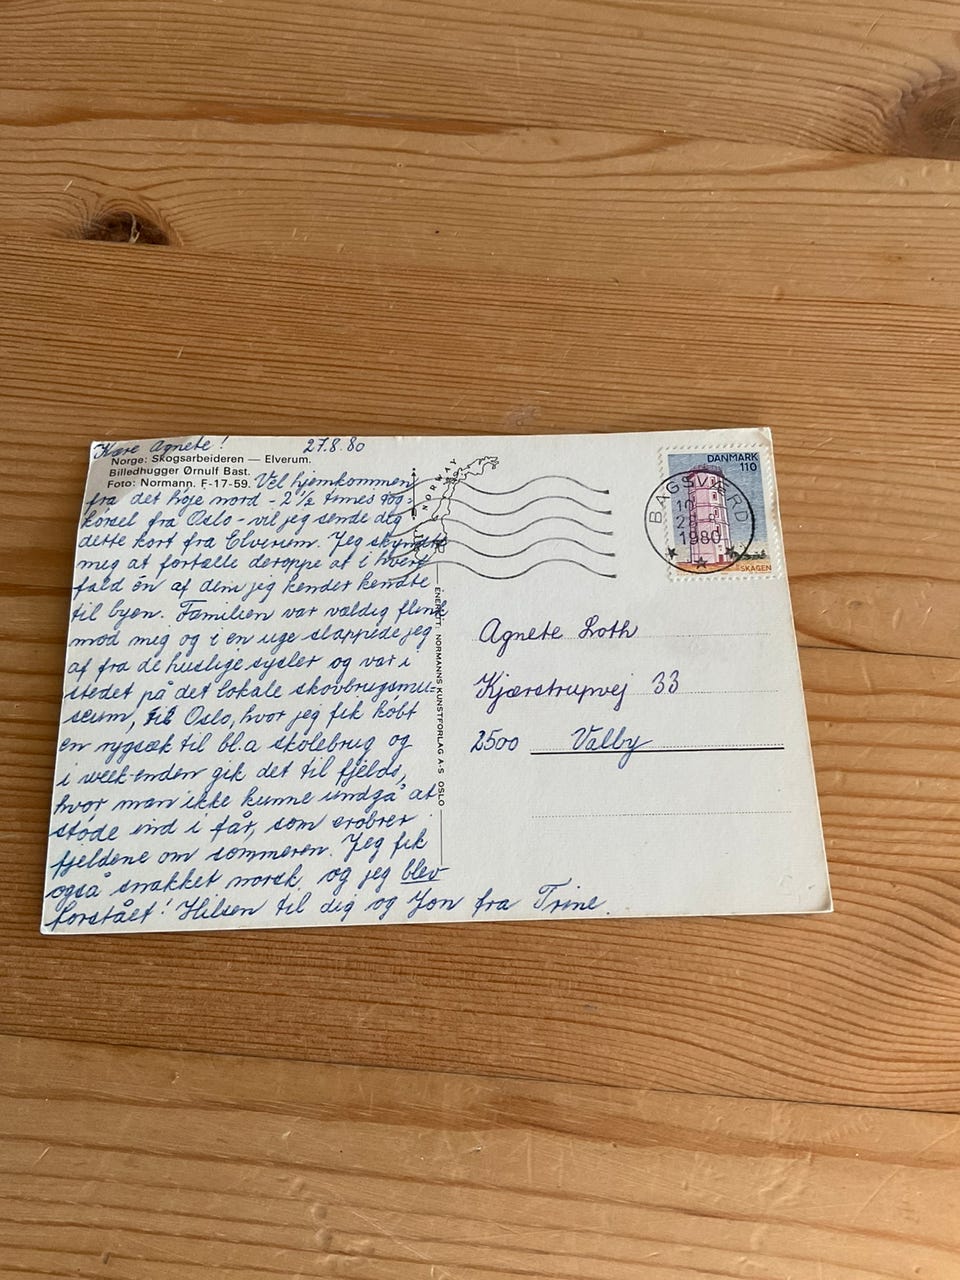 Kære Agnete! 27.8.80
Norge: Skogsarbeideren — Elverum.
Billedhugger Ørnulf Bast.
Foto: Normann. F-17-59. Vel hjemkommen
fra det høje nord - 2 1/2 times tog-
kørsel fra Oslo - vil jeg sende dig
dette kort fra Elverum. Jeg skyndte
meg at fortælle deroppe at i hvert
fald én af dem jeg kender kendte
til byen. Familien var vældig flink
mod meg og i en uge slappede jeg
af fra de huslige sysler og var i
stedet på det lokale skovbrugsmu-
seum, til Oslo, hvor jeg fik købt
en rygsæk til bl.a skolebrug og
i week-enden gik det til fjelds,
hvor man ikke kunne undgå at
støde ind i får, som erobrer
fjeldene om sommeren. Jeg fik
også snakket norsk, og jeg blev
forstået! Hilsen til dig og Jon fra Trine.
NORWAY
ENERETT: NORMANNS KUNSTFORLAG A-S OSLO
DANMARK
110
SKAGEN
BAGSVÆRD
1980
Agnete Loth
Kjærstrupvej 33
2500 Valby